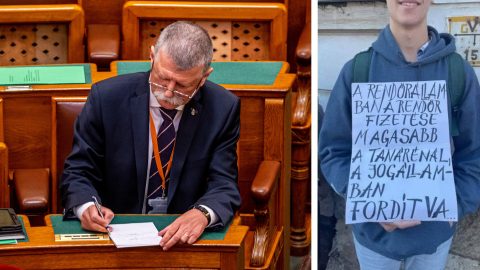 A RENDŐRÁLLAM
BAN A RENDŐR
FIZETÉSE
MAGASABB
A TANÁRÉNÁL,
A JOGÁLLAM-
BAN
FORDÍTVA...